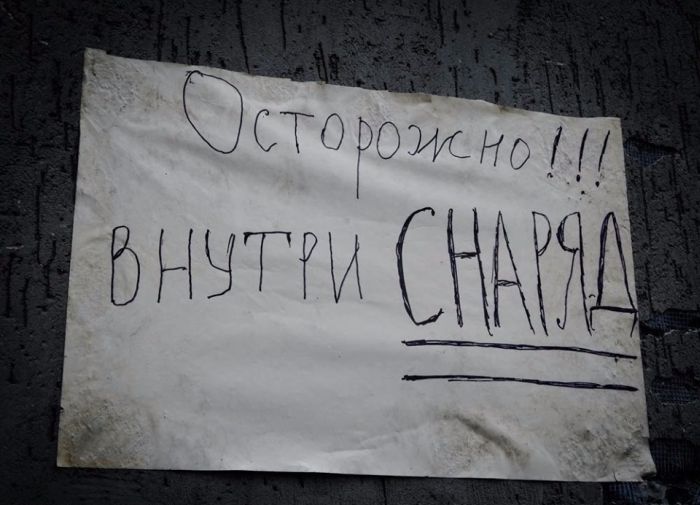 Осторожно!!!
внутри СНАРЯД